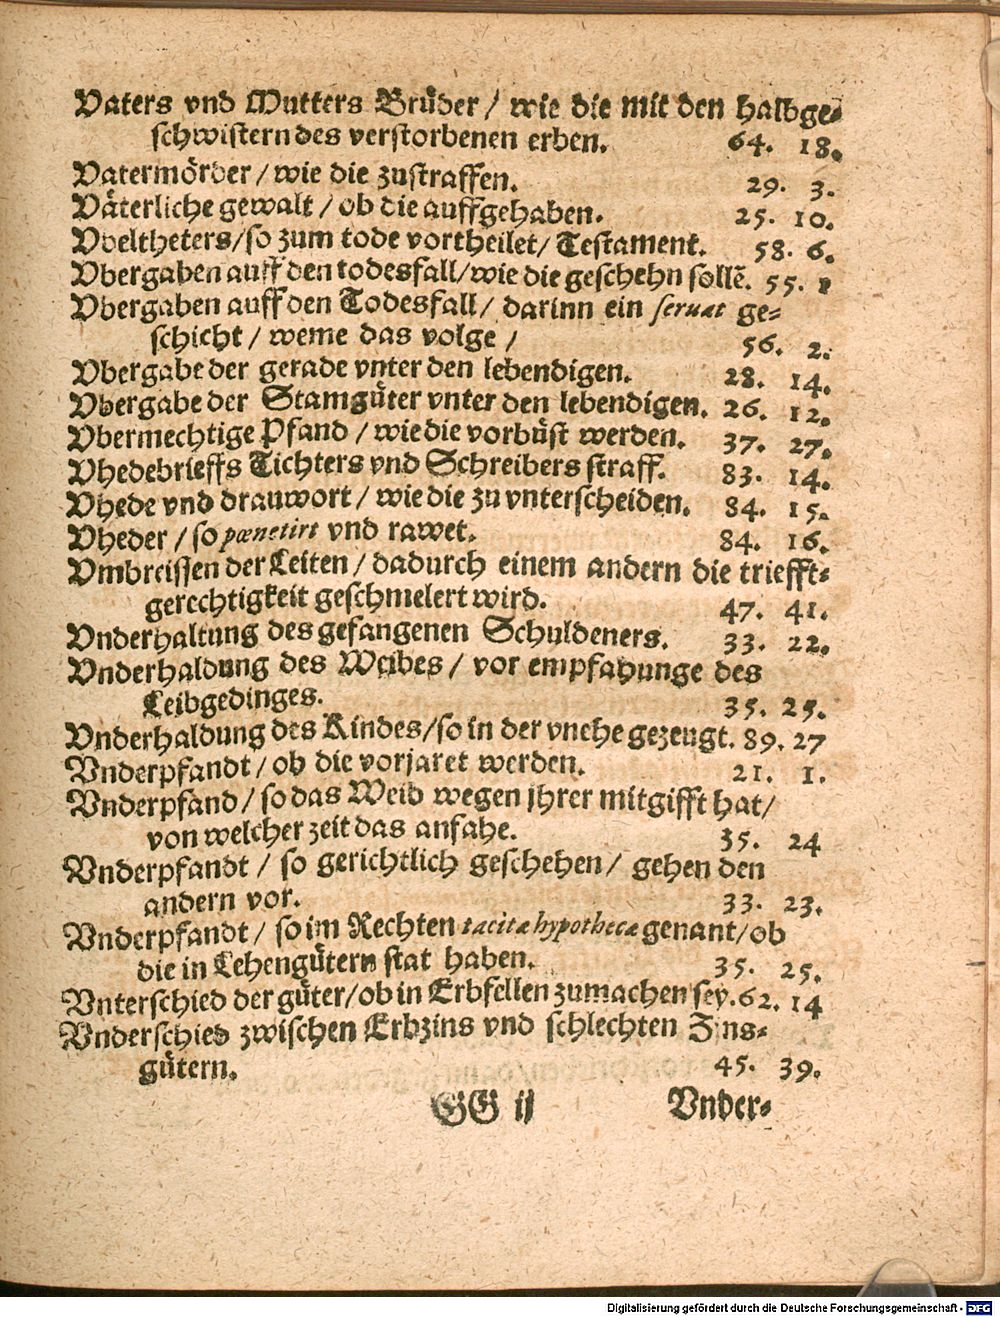 Vaters vnd Mutters Brüder / wie die mit den halbge-
schwistern des verstorbenen erben. 64. 18.
Vatermörder / wie die zustraffen. 29. 3.
Väterliche gewalt / ob die auffgehaben. 25. 10.
Vbeltheters/so zum tode vortheilet/ Testament. 58. 6.
Vbergaben auff den todesfall/wie die geschehn sollē. 55. 1
Vbergaben auff den Todesfall/ darinn ein seruat ge-
schicht / weme das volge / 56. 2.
Vbergabe der gerade vnter den lebendigen. 28. 14.
Vbergabe der Stamgüter vnter den lebendigen. 26. 12.
Vbermechtige Pfand / wie die vorbüst werden. 37. 27.
Vhedebrieffs Tichters vnd Schreibers straff. 83. 14.
Vhede vnd drauwort / wie die zu vnterscheiden. 84. 15.
Vheder / so pœnetirt vnd rawet. 84. 16.
Vmbreissen der Leiten / dadurch einem andern die triefft-
gerechtigkeit geschmelert wird. 47. 41.
Vnderhaltung des gefangenen Schuldeners. 33. 22.
Vnderhaldung des Weibes / vor empfahunge des
Leibgedinges. 35. 25.
Vnderhaldung des Kindes/so in der vnehe gezeugt. 89. 27
Vnderpfandt / ob die vorjaret werden. 21. 1.
Vnderpfand / so das Weib wegen jhrer mitgifft hat/
von welcher zeit das anfahe. 35. 24
Vnderpfandt / so gerichtlich geschehen / gehen den
andern vor. 33. 23.
Vnderpfandt / so im Rechten tacitæ hypothecæ genant/ob
die in Lehengütern stat haben. 35. 25.
Vnterschied der güter/ob in Erbfellen zumachen sey. 62. 14
Vnderschied zwischen Erbzins vnd schlechten Zins-
gütern. 45. 39.
GG ij Vnder-
Digitalisierung gefördert durch die Deutsche Forschungsgemeinschaft - DFG